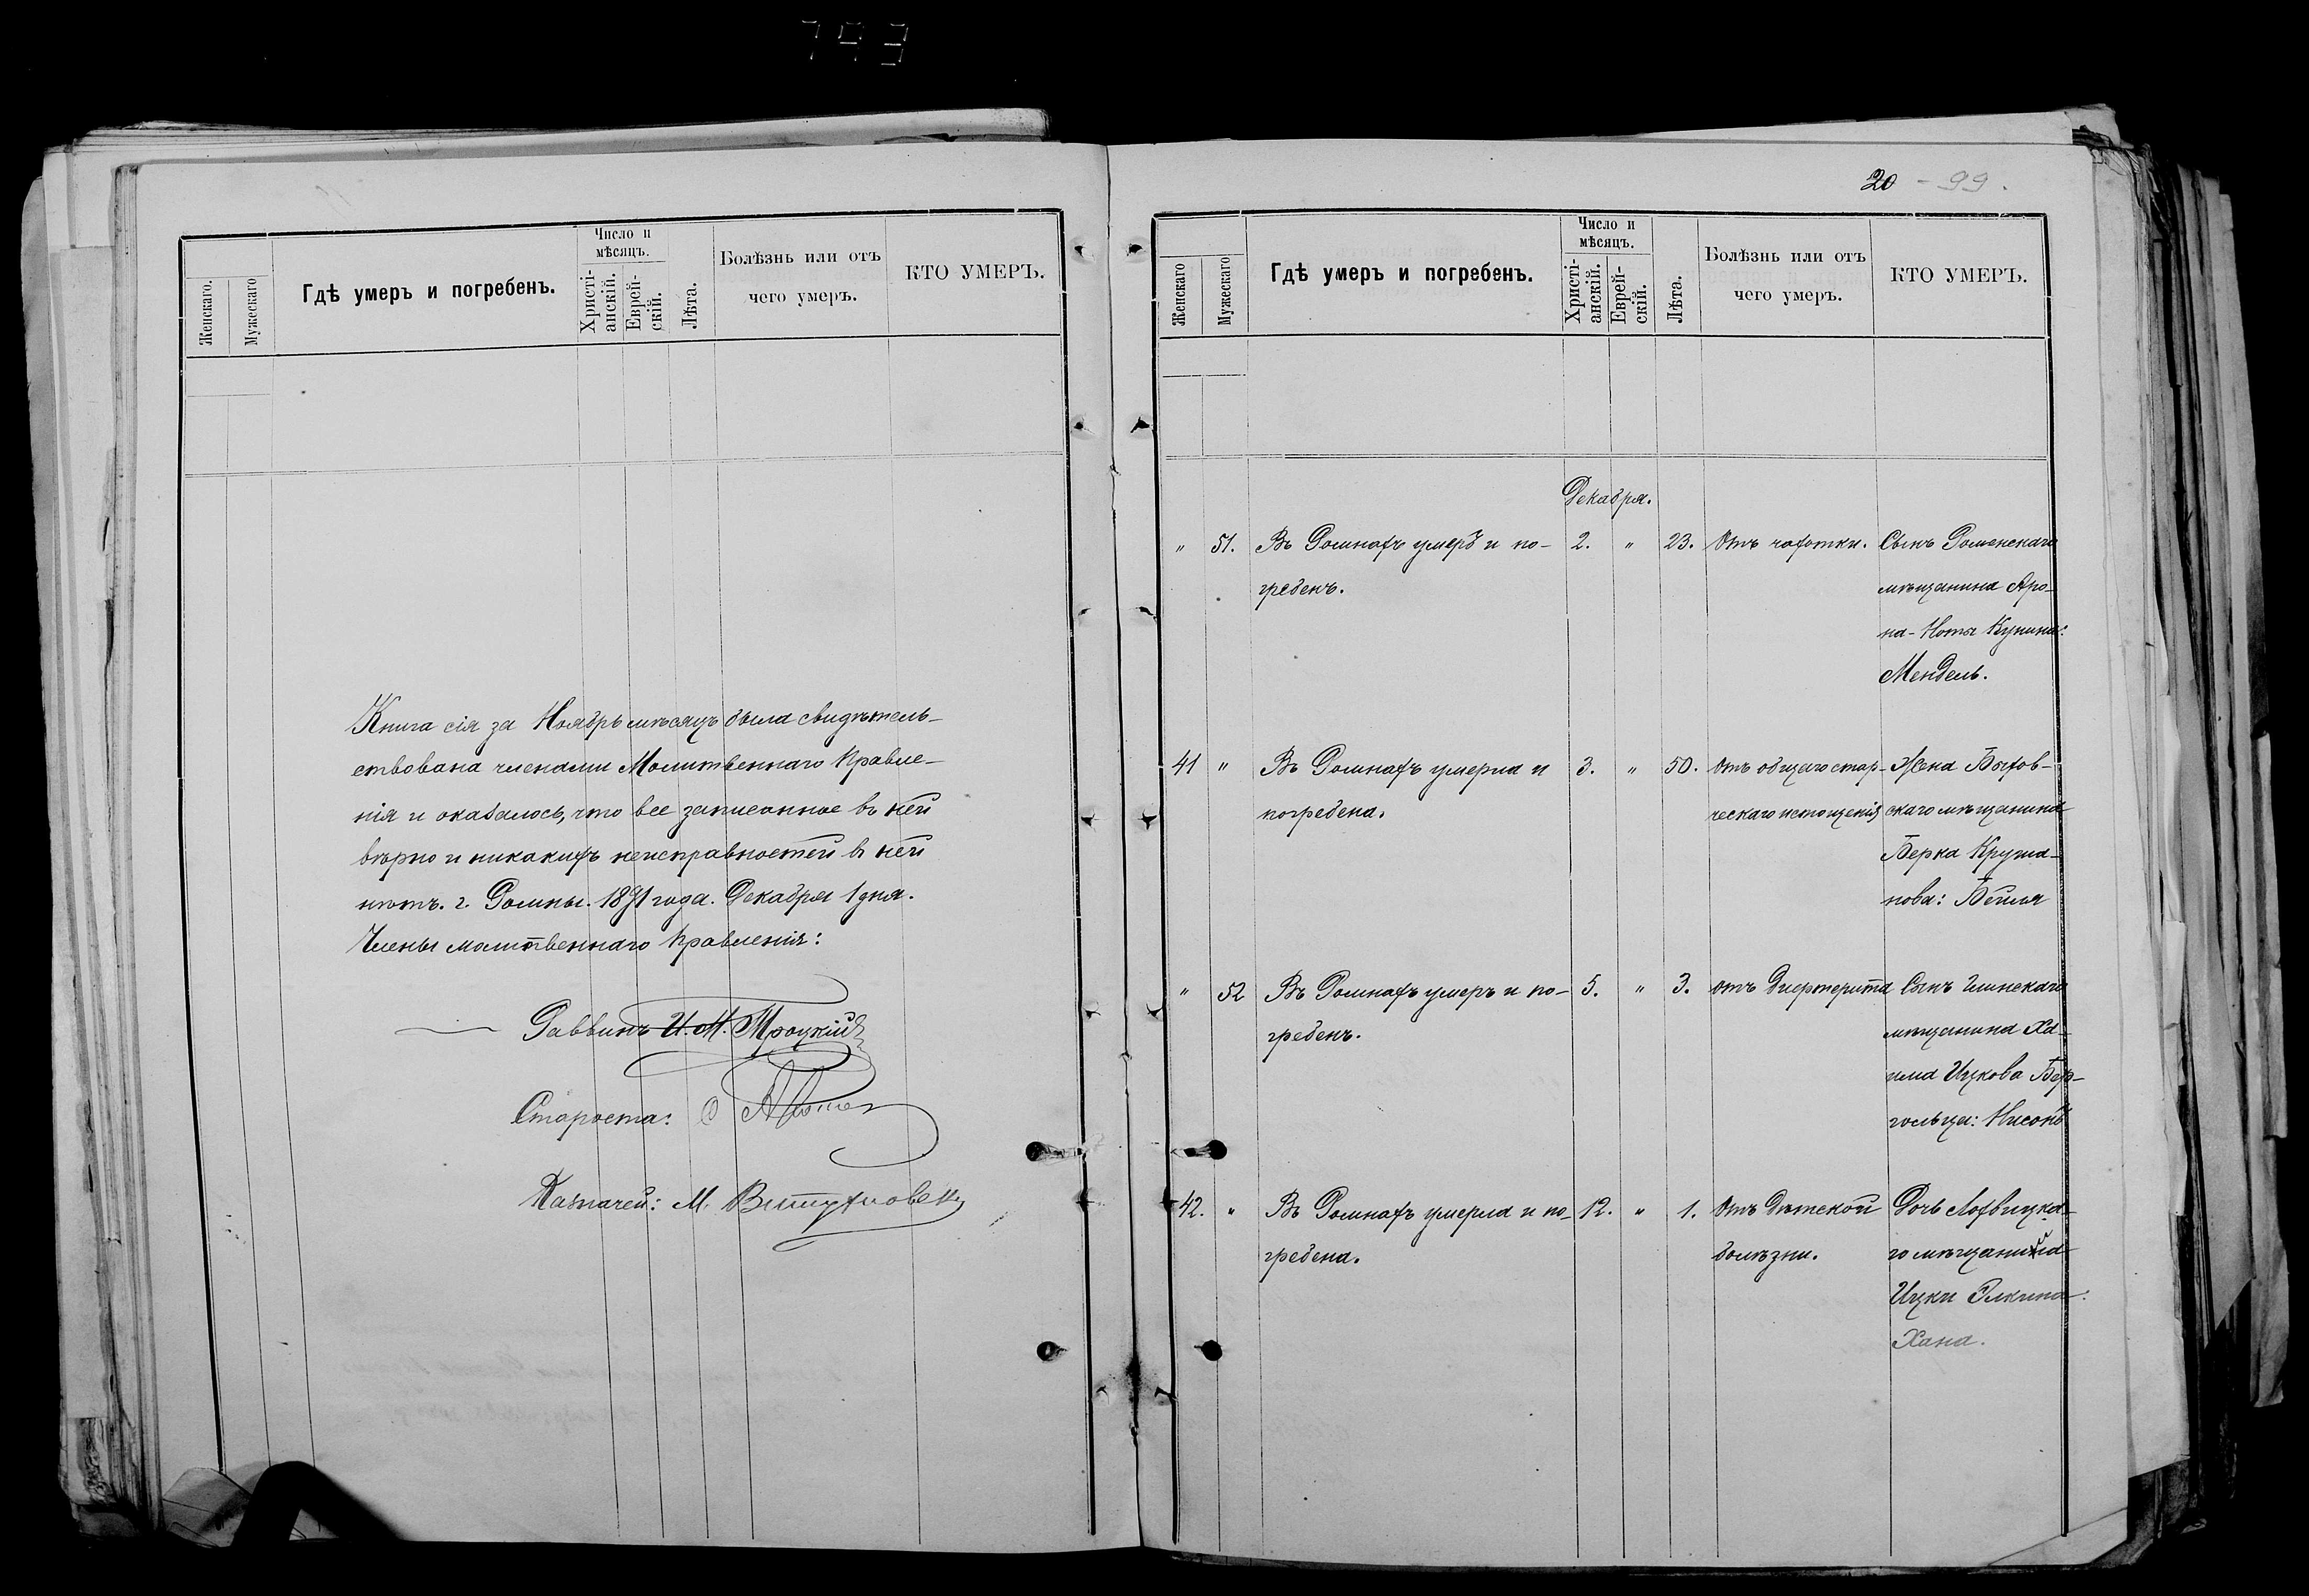 793
Женскаго.
Мужескаго
Гдѣ умеръ и погребенъ.
Число и
мѣсяцъ.
Христі-
анскій.
Еврей-
скій.
Лѣта.
Болѣзнь или отъ
чего умеръ.
КТО УМЕРЪ.
Книга сія за Ноябрь мѣсяцъ была свидѣтель-
ствована членами Молитвеннаго Правле-
нія и оказалось, что все записанное въ ней
вѣрно и никакихъ неисправностей въ ней
нѣтъ. г. Ромны. 1891 года. Декабря 1 дня.
Члены молитвеннаго Правленія:
Раввинъ И. М. Троцкій
Староста:
Казначей: М.
20 - 99.
Женскаго
Мужескаго
Гдѣ умеръ и погребенъ.
Число и
мѣсяцъ.
Христі-
анскій.
Еврей-
скій.
Лѣта.
Болѣзнь или отъ
чего умеръ.
КТО УМЕРЪ.
Декабря.
" 51. Въ Ромнахъ умеръ и по- 2. " 23. Отъ чахотки. Сынъ Роменскаго
гребенъ. мѣщанина Аро-
на-Ноты Кунина:
Мендель.
41 " Въ Ромнахъ умерла и 3. " 50. Отъ общаго стар- Жена Быхов-
погребена. ческаго истощенія скаго мѣщанина
Берка Кругла-
нова: Бейля
" 52 Въ Ромнахъ умеръ и по- 5. " 3. отъ Дифтерита Сынъ Глинскаго
гребенъ. мѣщанина Ха-
има Ицкова Бер-
гольца: Нисонъ
42. " Въ Ромнахъ умерла и по- 12. " 1. Отъ Дѣтской Дочь Лохвицка-
гребена. болѣзни. го мѣщанина
Ицки Элкина:
Хана.